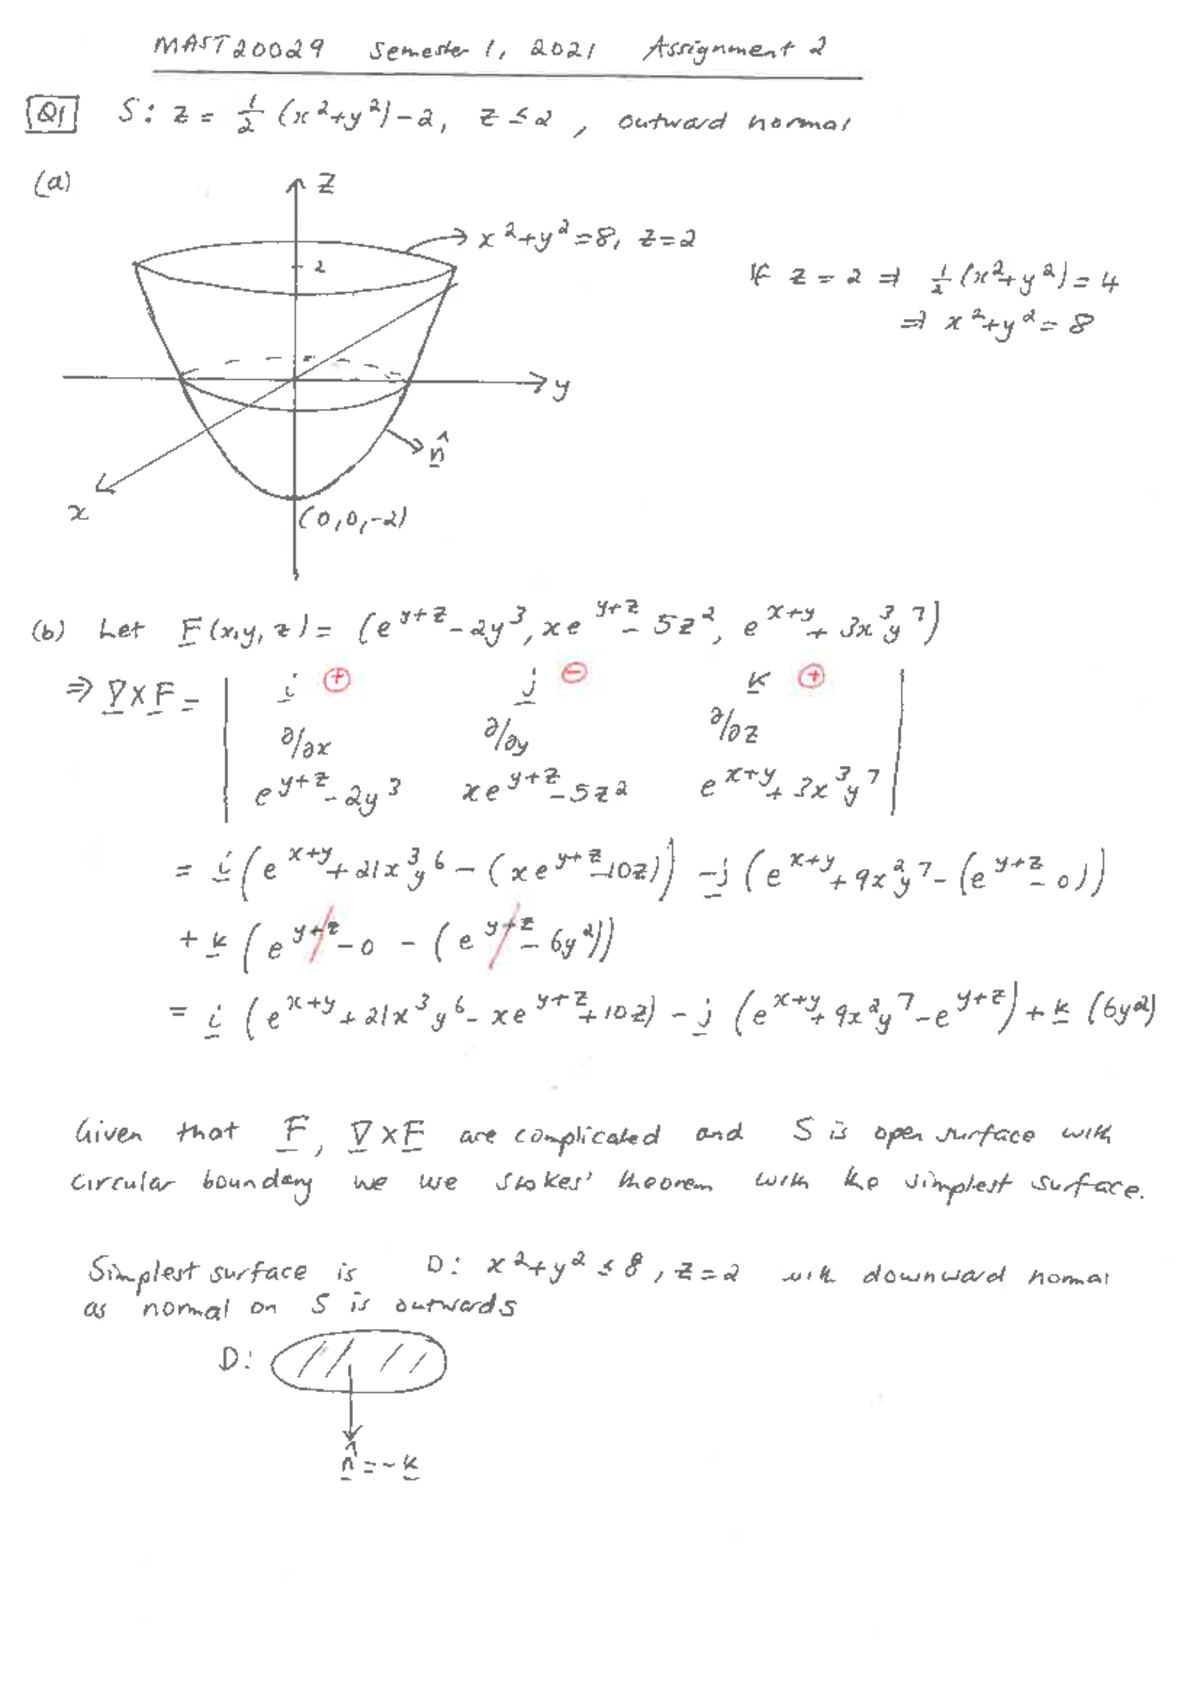 MAST20029 Semester 1, 2021 Assignment 2
Q1 S: z = 1/2 (x²+y²)-2, z ≤ 2, outward normal
(a)
z
x²+y²=8, z=2
2
If z = 2 ⇒ 1/2 (x²+y²) = 4
⇒ x²+y² = 8
y
n̂
x
(0,0,-2)
(b) Let F(x,y,z) = (e^(y+z) - 2y³, xe^(y+z) - 5z², e^(x+y) + 3x³y⁷)
⇒ ∇×F = | i ⊕ j ⊖ k ⊕ |
∂/∂x ∂/∂y ∂/∂z
e^(y+z) - 2y³ xe^(y+z) - 5z² e^(x+y) + 3x³y⁷
= i (e^(x+y) + 21x³y⁶ - (xe^(y+z) - 10z)) - j (e^(x+y) + 9x²y⁷ - (e^(y+z) - 0))
+ k (e^(y+z) - 0 - (e^(y+z) - 6y²))
= i (e^(x+y) + 21x³y⁶ - xe^(y+z) + 10z) - j (e^(x+y) + 9x²y⁷ - e^(y+z)) + k (6y²)
Given that F, ∇×F are complicated and S is open surface with
circular boundary we use Stokes' theorem with the simplest surface.
Simplest surface is D: x²+y² ≤ 8, z=2 with downward normal
as normal on S is outwards
D:
n̂ = -k